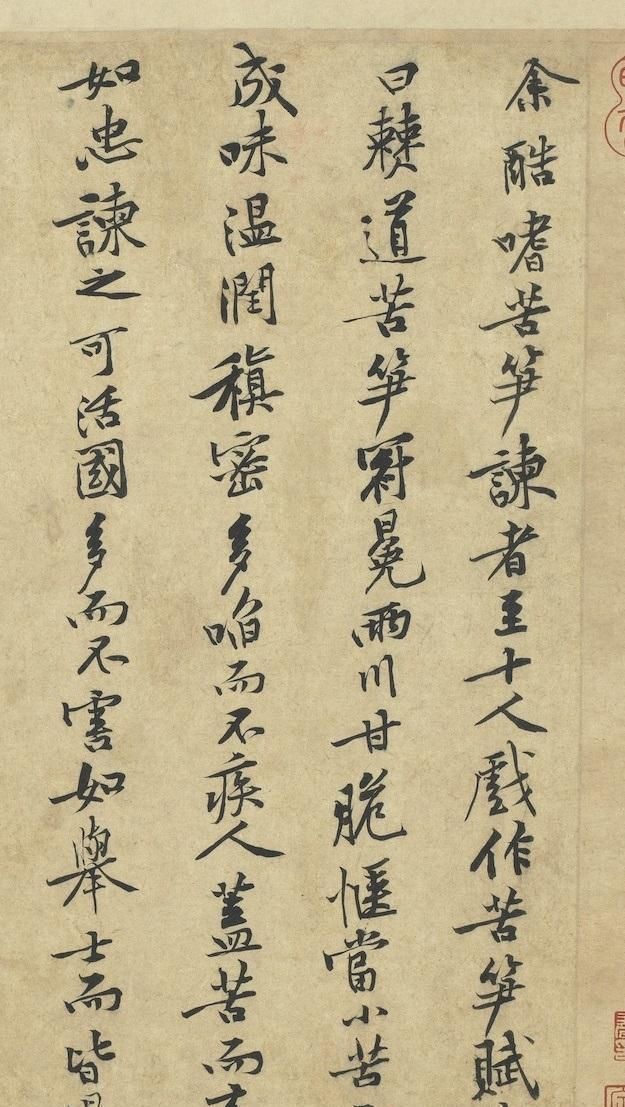 余酷嗜苦笋諫者至十人戲作苦笋賦
曰僰道苦笋冠冕兩川甘脆愜當小苦
成味温潤稹密多啗而不疾人蓋苦而
如忠諫之可活國多而不害如舉士而皆